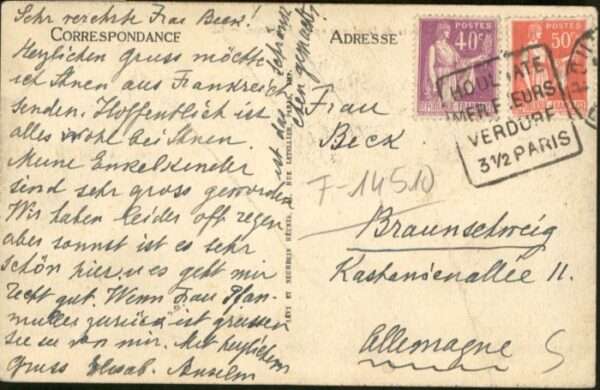 Sehr verehrte Frau Beck!
CORRESPONDANCE
Herzlichen Gruss möchte
ich Ihnen aus Frankreich
senden. Hoffentlich ist
alles wohl bei Ihnen.
Meine Enkelkinder
sind sehr gross geworden
Wir haben leider oft regen
aber sonst ist es sehr
schön hier u es geht mir
recht gut. Wenn Frau Pfan-
müller zurück ist grüssen
sie sie von mir. Mit herzlichem
Gruss Elisab. Anselm
ist das schönste
chen gepasst!
LÉVY ET NEURDEIN RÉUNIS, 44, RUE LETELLIER, PARIS
ADRESSE
POSTES
40c
POSTES
50c
HOULGATE
MER FLEURS
VERDURE
3½ PARIS
Frau
Beck
F-14510
Braunschweig
Kastanienallee 11.
Allemagne